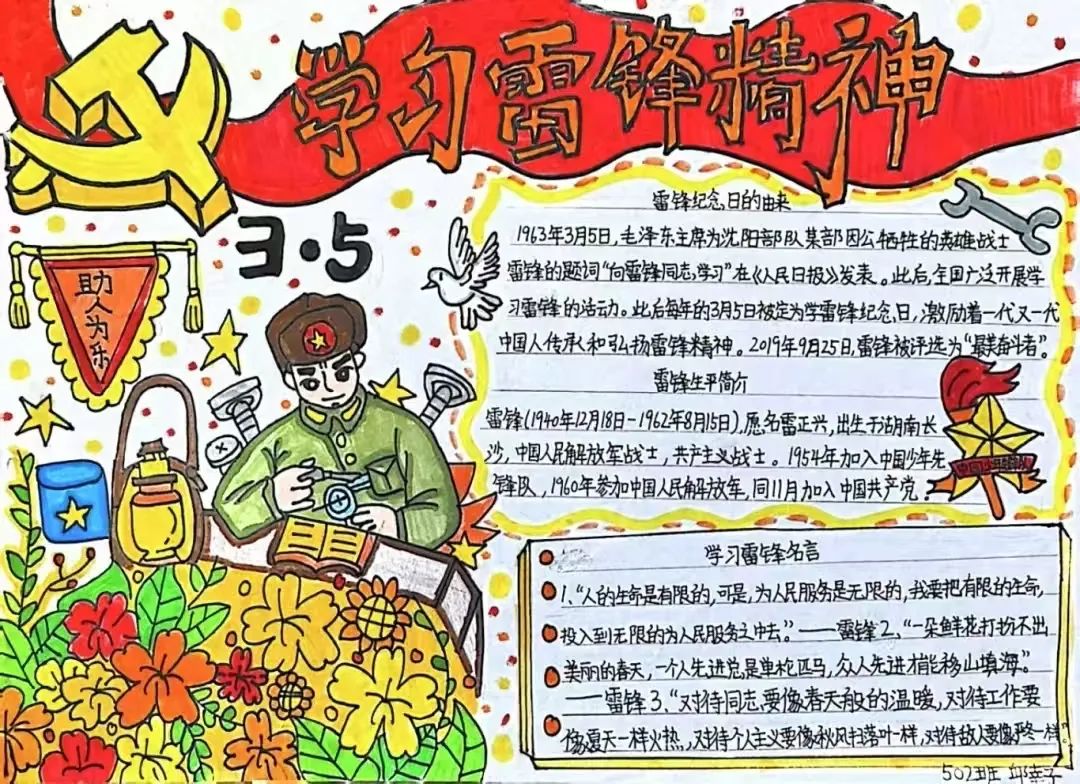 学习雷锋精神
3·5
助人为乐
雷锋纪念日的由来
1963年3月5日，毛泽东主席为沈阳部队某部因公牺牲的英雄战士
雷锋的题词“向雷锋同志学习”在《人民日报》发表。此后，全国广泛开展学
习雷锋的活动。此后每年的3月5日被定为学雷锋纪念日，激励着一代又一代
中国人传承和弘扬雷锋精神。2019年9月25日，雷锋被评选为“最美奋斗者”。
雷锋生平简介
雷锋（1940年12月18日-1962年8月15日），愿名雷正兴，出生于湖南长
沙，中国人民解放军战士，共产主义战士。1954年加入中国少年先
锋队，1960年参加中国人民解放军，同11月加入中国共产党。
中国少年先锋队
学习雷锋名言
1、“人的生命是有限的，可是，为人民服务是无限的，我要把有限的生命，
投入到无限的为人民服务之中去。”——雷锋2、“一朵鲜花打扮不出
美丽的春天，一个人先进总是单枪匹马，众人先进才能移山填海。”
——雷锋3、“对待同志要像春天般的温暖，对待工作要
像夏天一样火热，对待个人主义要像秋风扫落叶一样，对待敌人要像严冬一样”
502班